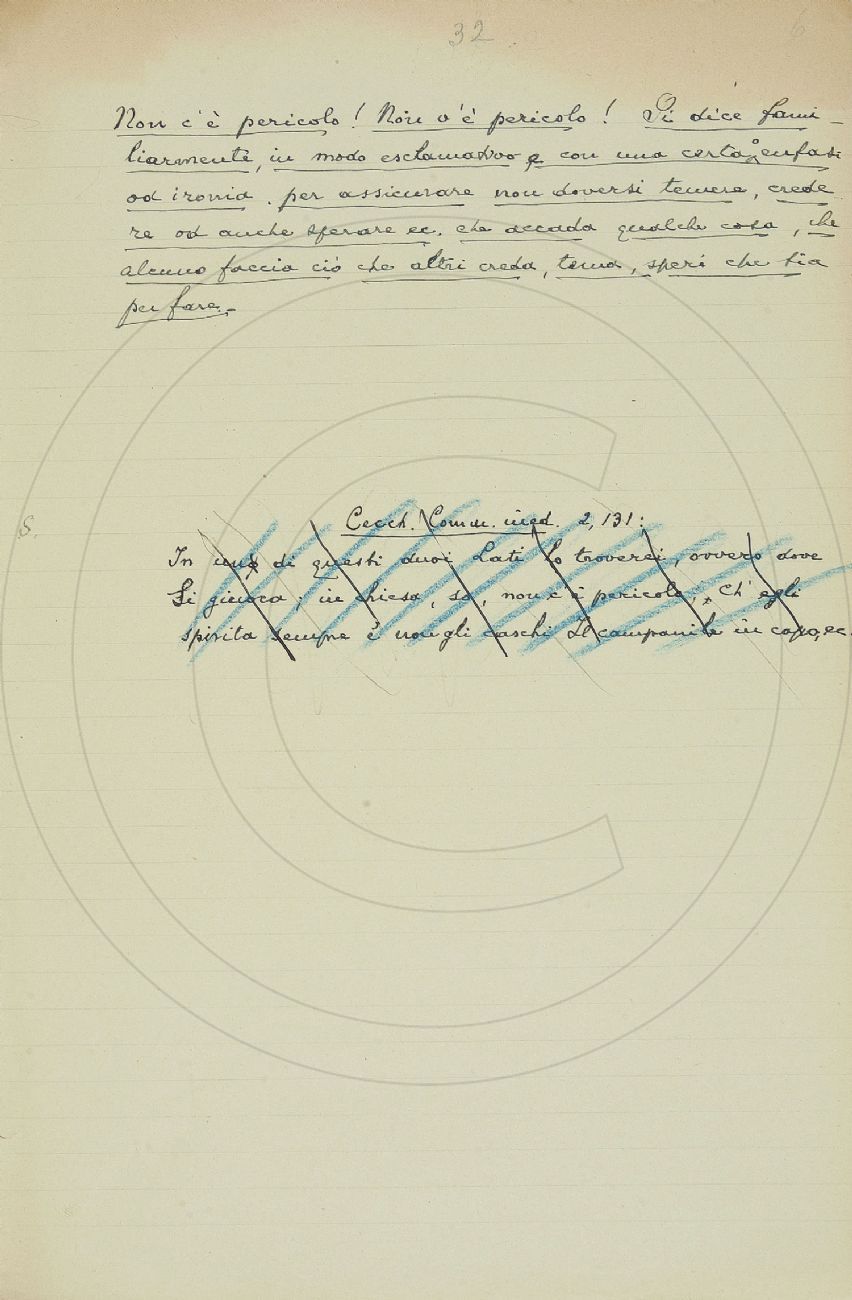 32
6
Non c'è pericolo! Non v'è pericolo! Si dice fami-
liarmente, in modo esclamativo e con una certa enfasi
od ironia, per assicurare non doversi temere, crede
re od anche sperare ec. che accada qualche cosa, che
alcuno faccia ciò che altri creda, tema, speri che sia
per fare.-
S.
Cecch. Comm. ined. 2, 131:
In uno di questi duoi Lati Lo troverei, ovvero dove
Si giuoca; in chiesa, so, non c'è pericolo; Ch' egli
spirita sempre è non gli caschi Il campanile in capo, ec.